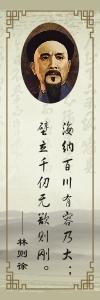 海纳百川有容乃大；
壁立千仞无欲则刚。
——林则徐